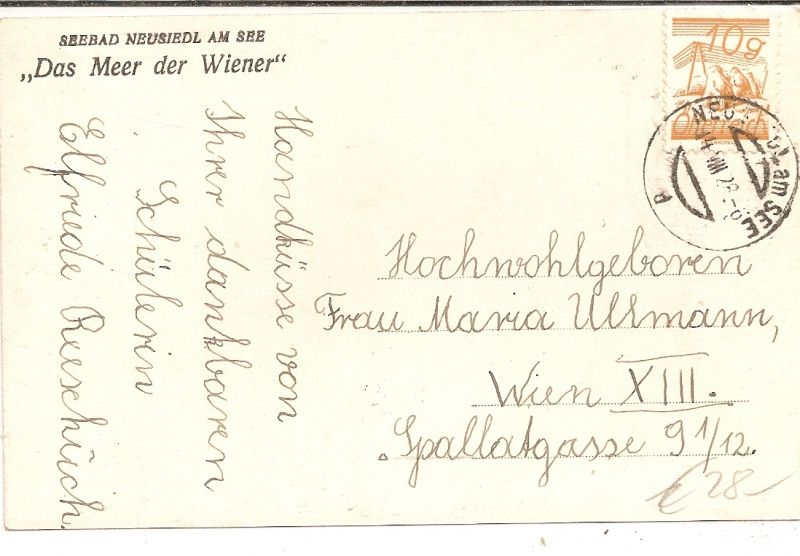 SEEBAD NEUSIEDL AM SEE
„Das Meer der Wiener“
10g
Österreich
am SEE
Handküsse von
Ihrer dankbaren
Schülerin
Elfriede
Hochwohlgeboren
Frau Maria Ullmann,
Wien XIII.
Spallatgasse 9 1/12.
€ 28-